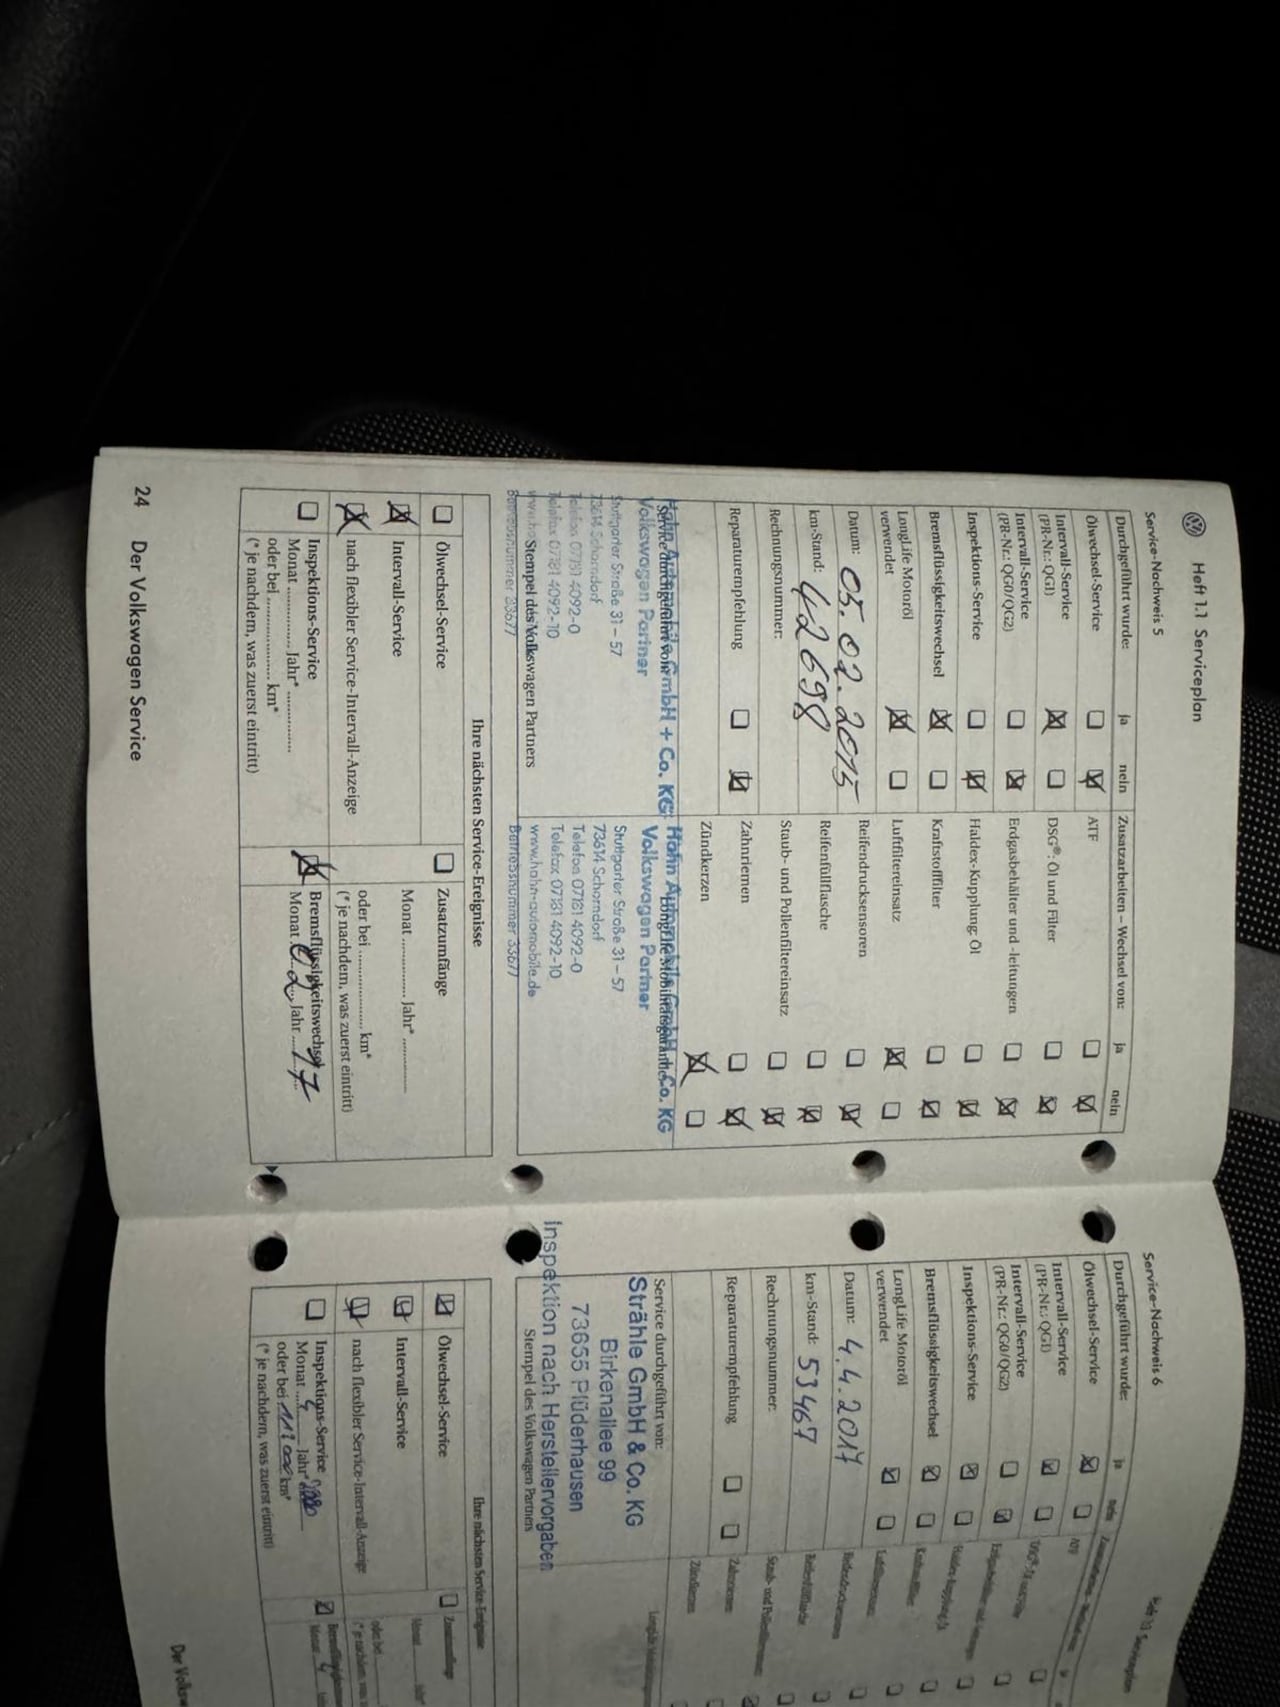 Heft 1.1 Serviceplan
Service-Nachweis 5
Durchgeführt wurde: ja nein
Ölwechsel-Service
Intervall-Service
(PR-Nr.: QG1)
Intervall-Service
(PR-Nr.: QG0/QG2)
Inspektions-Service
Bremsflüssigkeitswechsel
LongLife Motoröl
verwendet
Datum: 05.02.2015
km-Stand: 42698
Rechnungsnummer:
Reparaturempfehlung
Zusatzarbeiten – Wechsel von: ja nein
ATF
DSG®: Öl und Filter
Erdgasbehälter und -leitungen
Haldex-Kupplung: Öl
Kraftstofffilter
Luftfiltereinsatz
Reifendrucksensoren
Reifenfüllflasche
Staub- und Pollenfiltereinsatz
Zahnriemen
Zündkerzen
Service durchgeführt von:
Hahn Automobile GmbH + Co. KG
Volkswagen Partner
Stuttgarter Straße 31 – 57
73614 Schorndorf
Telefon 07181 4092-0
Telefax 07181 4092-10
Betriebsnummer 33677
Stempel des Volkswagen Partners
LongLife Mobilitätsgarantie:
Hahn Automobile GmbH + Co. KG
Volkswagen Partner
Stuttgarter Straße 31 – 57
73614 Schorndorf
Telefon 07181 4092-0
Telefax 07181 4092-10
www.hahn-automobile.de
Betriebsnummer 33677
Ihre nächsten Service-Ereignisse
Ölwechsel-Service
Intervall-Service
nach flexibler Service-Intervall-Anzeige
Inspektions-Service
Monat ............ Jahr* ............
oder bei .................. km*
(* je nachdem, was zuerst eintritt)
Zusatzumfänge
Monat ............ Jahr* ............
oder bei .................. km*
(* je nachdem, was zuerst eintritt)
Bremsflüssigkeitswechsel
Monat 02 Jahr 17
24 Der Volkswagen Service
Service-Nachweis 6
Durchgeführt wurde: ja nein
Ölwechsel-Service
Intervall-Service
(PR-Nr.: QG1)
Intervall-Service
(PR-Nr.: QG0/QG2)
Inspektions-Service
Bremsflüssigkeitswechsel
LongLife Motoröl
verwendet
Datum: 4.4.2017
km-Stand: 53467
Rechnungsnummer:
Reparaturempfehlung
ATF
Zahnriemen
Zündkerzen
Service durchgeführt von:
Strähle GmbH & Co. KG
Birkenallee 99
73655 Plüderhausen
Inspektion nach Herstellervorgaben
Stempel des Volkswagen Partners
Ihre nächsten Service-Ereignisse
Ölwechsel-Service
Intervall-Service
nach flexibler Service-Intervall-Anzeige
Inspektions-Service
Monat 4 Jahr*
oder bei km*
(* je nachdem, was zuerst eintritt)
Zusatzumfänge
Monat